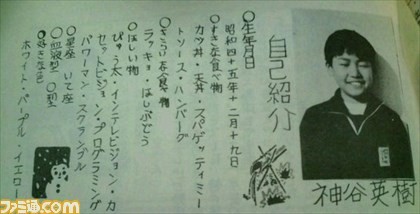 神谷英樹
自己紹介
◎生年月日
昭和四十五年十二月十九日
◎すきな食べ物
カツ丼・天丼・スパゲッティミー
トソース・ハンバーグ
◎きらいな食べ物
ラッキョ・ほしぶどう
◎ほしい物
ぴゅう太・インテレビジョン・カ
セットビジョン・プログラミング
パワーマン・スクランブル
◎星座 いて座
◎血液型 O型
◎好きな色
ホワイト・パープル・イエロー
ファミ通.com